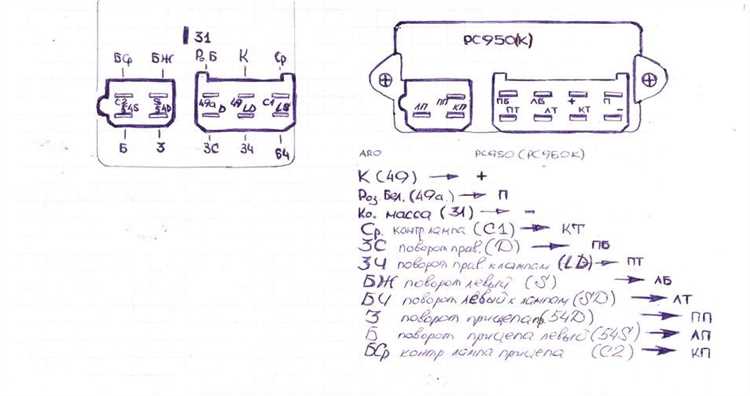 31
БФ БЖ Роз.Б К Ср
С2 S 49а D 49 LD С1 LS
54S 54D
Б З ЗС ЗЧ БЧ
РС950(К)
ПП ПБ ЛБ + П
ЛП КП ПТ ЛТ КТ -
ARO РС950 (РС950К)
К (49) → +
Роз.Бел. (49а.) → П
Ко. масса (31) → -
Ср. контр лампа (С1) → КТ
ЗС поворот прав. (D) → ПБ
ЗЧ поворот прав. к лампам (LD) → ПТ
БЖ поворот левый (S) → ЛБ
БЧ поворот левый к лампам (SD) → ЛТ
З поворот прицепа пр. (54D) → ПП
Б поворот прицепа левый (54S) → ЛП
БСр контр лампа прицепа (С2) → КП